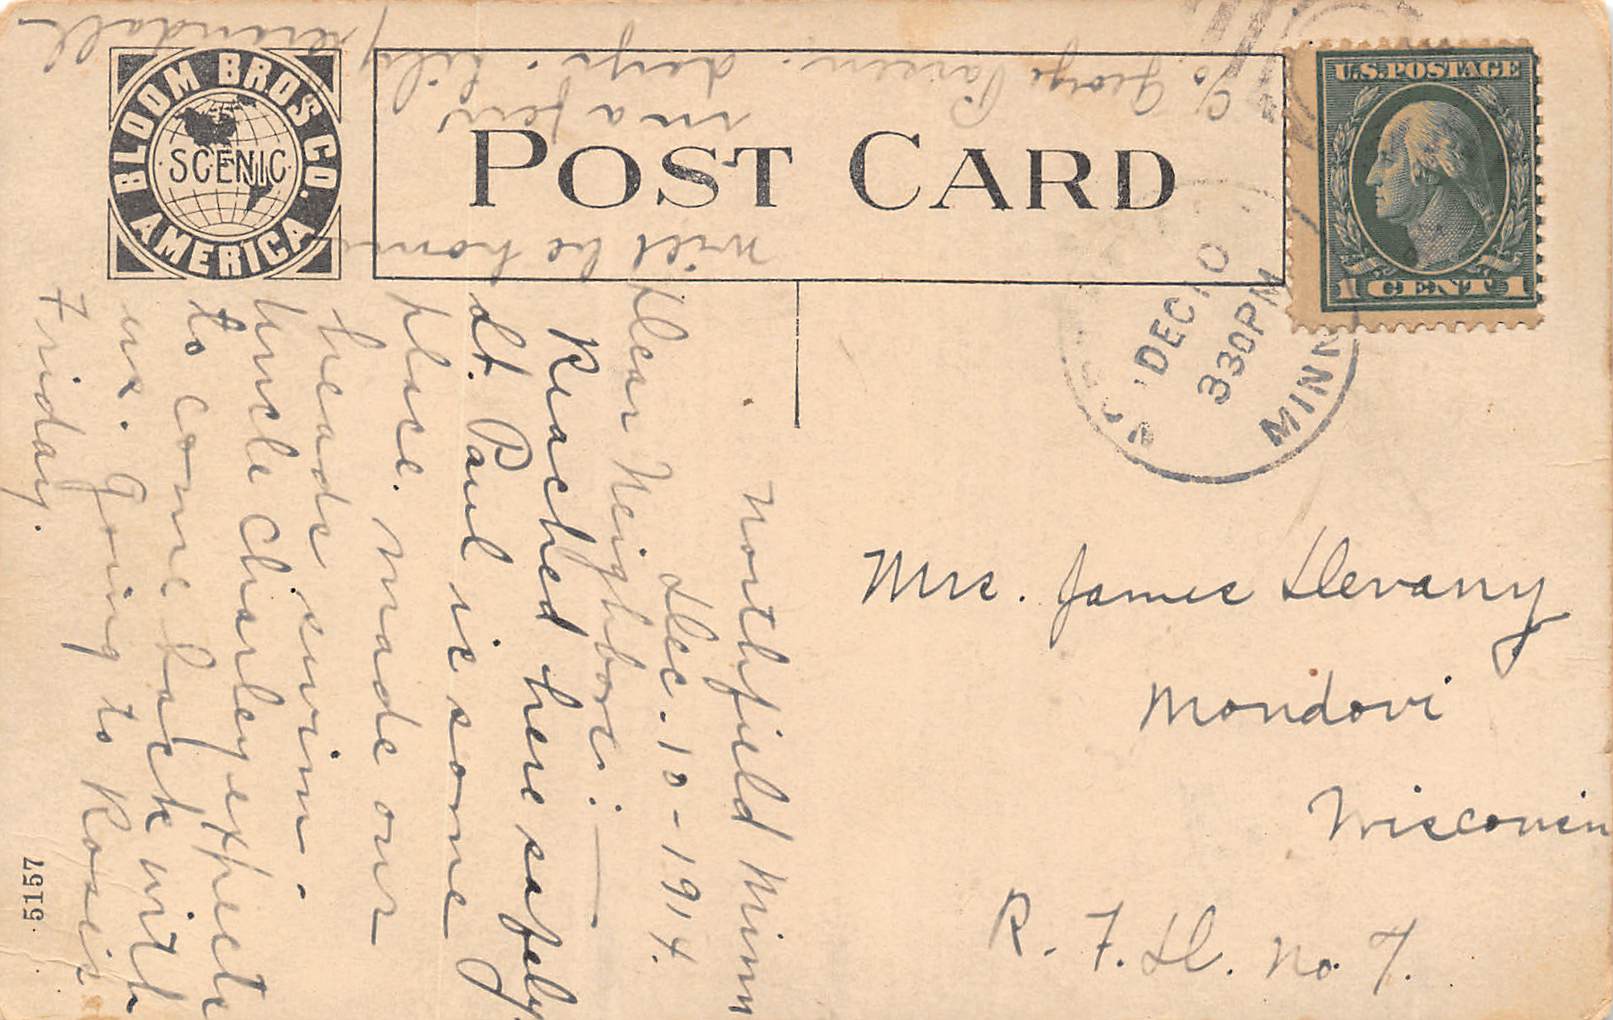 BLOOM BROS CO.
AMERICA
SCENIC
POST CARD
U.S. POSTAGE
1 CENT 1
DEC 10
3 30 PM
MINN
Northfield Minn
Dec. 10 - 1914.
Dear Neighbors: —
Reached here safely.
St. Paul is some
place. Made our
heads swim.
Uncle Charley expects
to come back with
us. Going to Rosie's
Friday.
will be home
in a few
days. Lily
c/o George
Mrs. James Devany
Mondovi
Wisconsin
R. F. D. No. 7.
5157